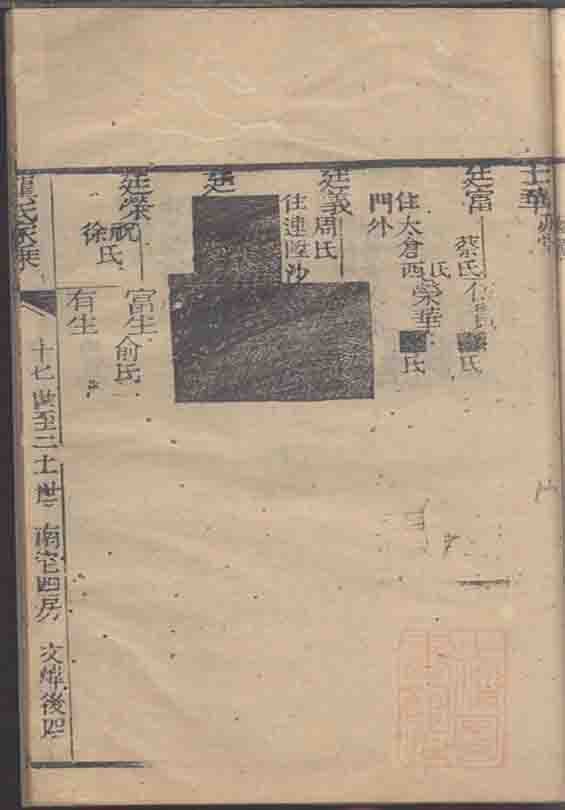 士華
廷富
蔡氏
氏
住大倉西
門外
榮華
氏
廷義
周氏
往連陞沙
廷
廷榮
祝氏
徐氏
富生
俞氏
有生
氏家乘
十七世至二十世 南宅四房 文煒後